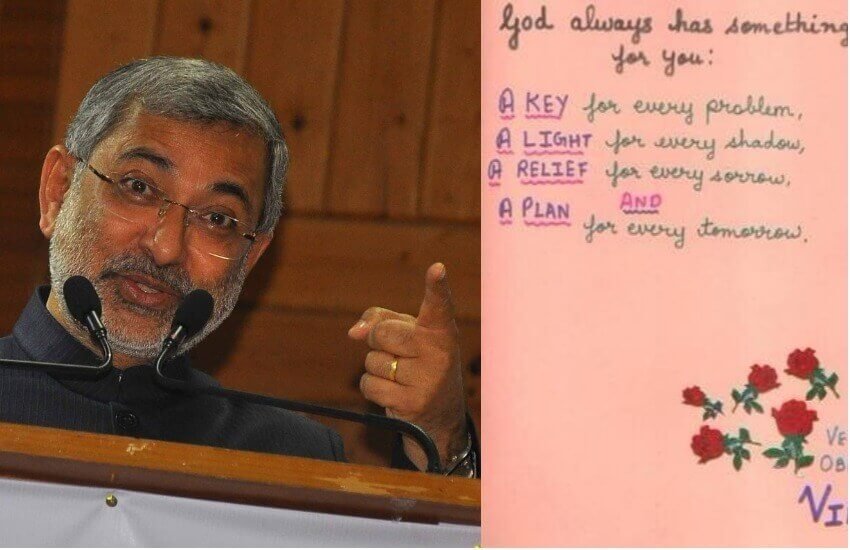 God always has something
for you:
A KEY for every problem,
A LIGHT for every shadow,
A RELIEF for every sorrow,
AND
A PLAN for every tomorrow.
VE
OB
VI